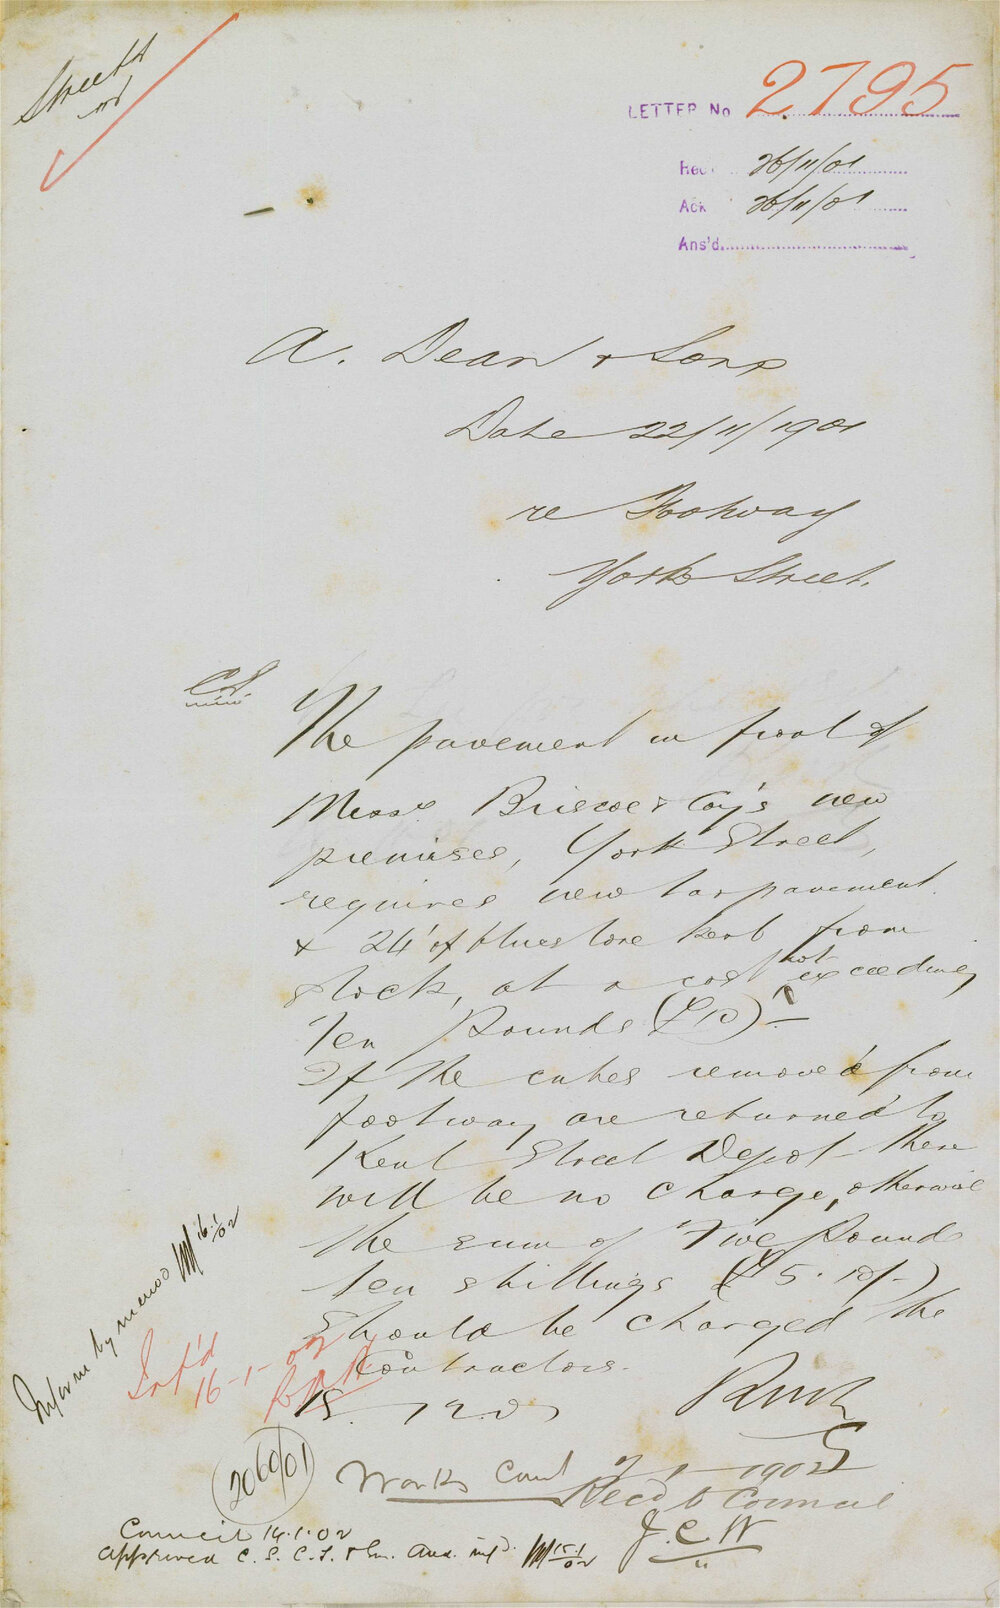 Streets
LETTER No 2795
Rec. 26/11/01
Ack 26/11/01
Ans'd
A. Dean & Sons
Date 22/11/1901
re Footway
York Street.
C.S.
The pavement in front of
Messrs Briscoe & Coy's new
premises, York Street,
requires new tar pavement
& 24' of bluestone kerb from
stock, at a cost not exceeding
Ten Pounds (£10)
If the cubes remove'd from
footway are returned to
Kent Street Depot there
will be no charge, otherwise
the sum of Five Pounds
ten shillings (£5.10/-)
Should be charged the
Contractors.
Inform by memo 16.1/02
Inf'd
16-1-02
2060/01
Works Comt 7-1-1902
Rec'd to Council
J.C.W
Council 14.1.02
Approved C.S. C.T. & Ans. inf'd. 15.1/02